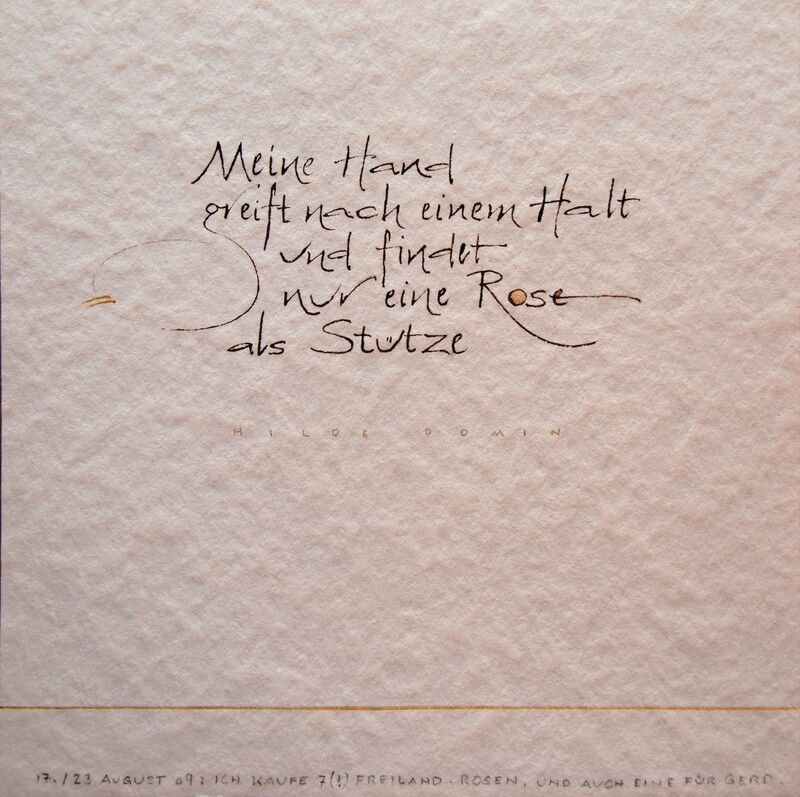 Meine Hand
greift nach einem Halt
und findet
nur eine Rose
als Stütze
HILDE DOMIN
17./23 AUGUST 09: ICH KAUFE 7(!) FREILAND-ROSEN, UND AUCH EINE FÜR GERD.